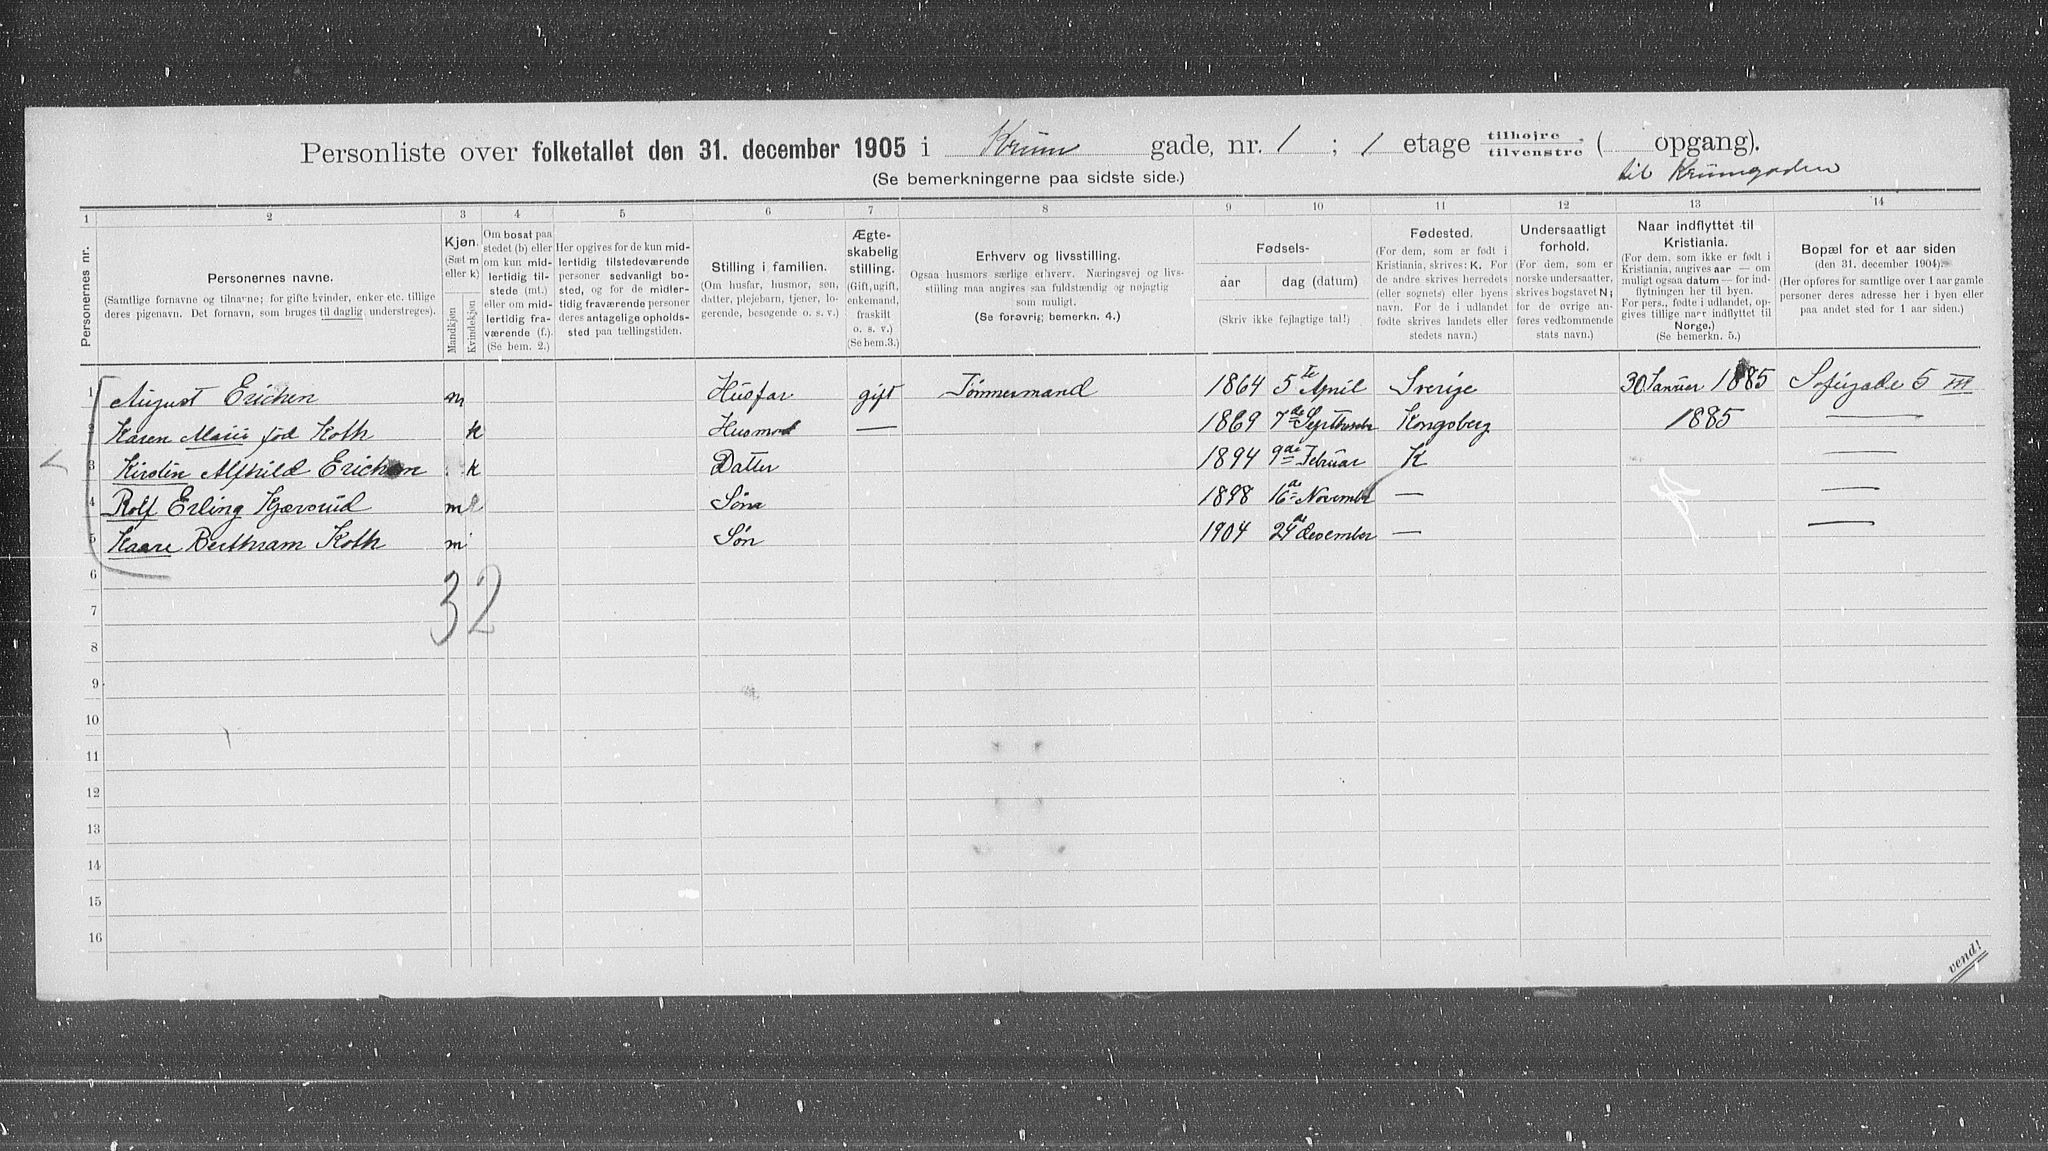 Personliste over folketallet den 31. december 1905 i Krum gade, nr. 1 ; 1 etage tilhøjre tilvenstre ( opgang).
(Se bemerkningerne paa sidste side.)
til Krumgaden
1 2 3 4 5 6 7 8 9 10 11 12 13 14
Personernes nr.
Personernes navne.
(Samtlige fornavne og tilnavne; for gifte kvinder, enker etc. tillige
deres pigenavn. Det fornavn, som bruges til daglig, understreges).
Kjøn.
(Sæt m
eller k)
Mandkjøn
Kvindekjøn
Om bosat paa
stedet (b) eller
om kun mid-
lertidig til-
stede (mt.)
eller om mid-
lertidig fra-
værende (f.).
(Se bem. 2.)
Her opgives for de kun mid-
lertidig tilstedeværende
personer sedvanligt bo-
sted, og for de midler-
tidig fraværende personer
deres antagelige opholds-
sted paa tællingstiden.
Stilling i familien.
(Om husfar, husmor, søn,
datter, plejebarn, tjener, lo-
gerende, besøgende o. s. v.)
Ægte-
skabelig
stilling.
(Gift, ugift,
enkemand,
fraskilt
o. s. v.)
(Se bem. 3.)
Erhverv og livsstilling.
Ogsaa husmors særlige erhverv. Næringsvej og livs-
stilling maa angives saa fuldstændig og nøjagtig
som muligt.
(Se forøvrig bemerkn. 4.)
Fødsels-
aar dag (datum)
(Skriv ikke fejlagtige tal!)
Fødested.
(For dem, som er født i
Kristiania, skrives: K. For
de andre skrives herredets
(eller sognets) eller byens
navn. For de i udlandet
fødte skrives landets eller
stedets navn.)
Undersaatligt
forhold.
(For dem, som er
norske undersaatter,
skrives bogstavet N;
for de øvrige an-
føres vedkommende
stats navn.)
Naar indflyttet til
Kristiania.
(For dem, som ikke er født i
Kristiania, angives aar — om
muligt ogsaa datum — for ind-
flytningen her til byen.
For pers., fødte i udlandet, op-
gives tillige naar indflyttet til
Norge.)
(Se bemerkn. 5.)
Bopæl for et aar siden
(den 31. december 1904).
(Her opføres for samtlige over 1 aar gamle
personer deres adresse her i byen eller
paa andet sted for 1 aar siden.)
1 August Erichen m Husfar gift Tømmermand 1864 5te April Sverige 30 Januar 1885 Sofiigade 5 III
2 Karen Marie fød Koth k Husmor — 1869 7de September Kongsberg 1885 —
3 Kirsten Alfhild Erichen k Datter 1894 9de Februar K —
4 Rolf Erling Kjærsrud m Søn 1898 16de November — —
5 Kaare Berthram Koth m Søn 1904 24de december — —
6
3 2
7
8
9
10
11
12
13
14
15
16
vend!